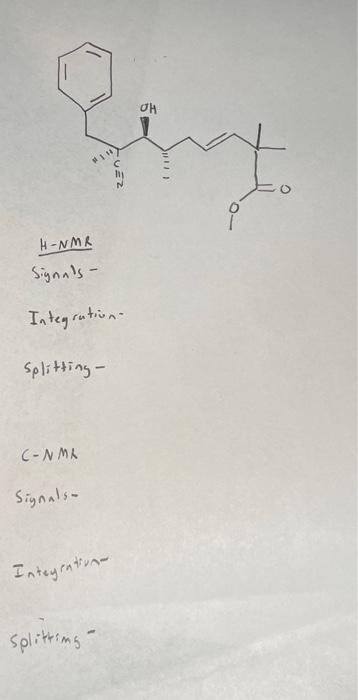 OH
H
C
N
O
O
H-NMR
Signals -
Integration-
Splitting -
C-NMR
Signals-
Integration-
Splitting -